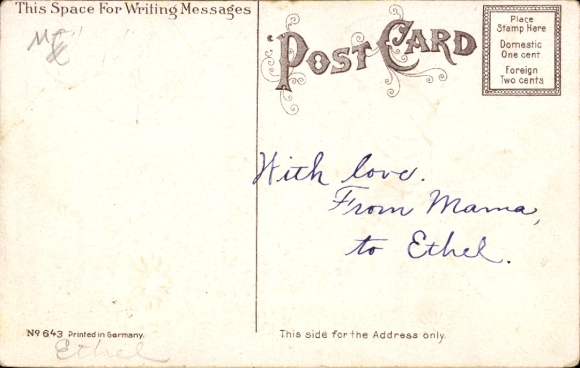 This Space For Writing Messages
POST CARD
Place
Stamp Here
Domestic
One cent
Foreign
Two cents
With love.
From Mama,
to Ethel.
Nº 643 Printed in Germany.
Ethel
This side for the Address only.